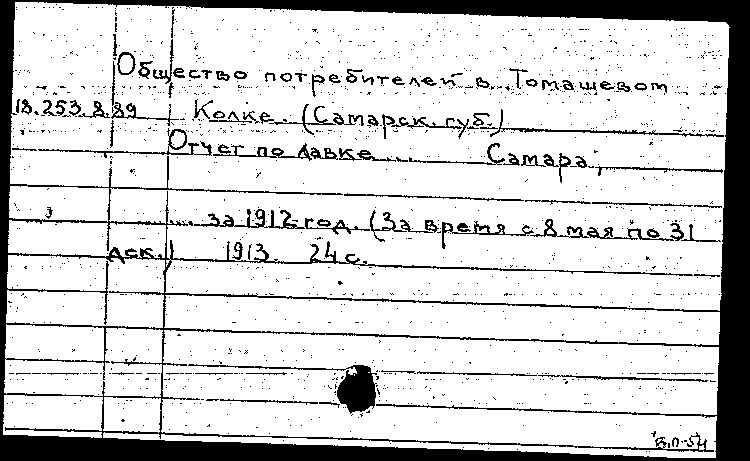 Общество потребителей в Томашевом
18.253.8.89 Колке. (Самарск. губ.)
Отчет по лавке... Самара,
... за 1912 год. (За время с 8 мая по 31
дек.) 1913. 24 с.